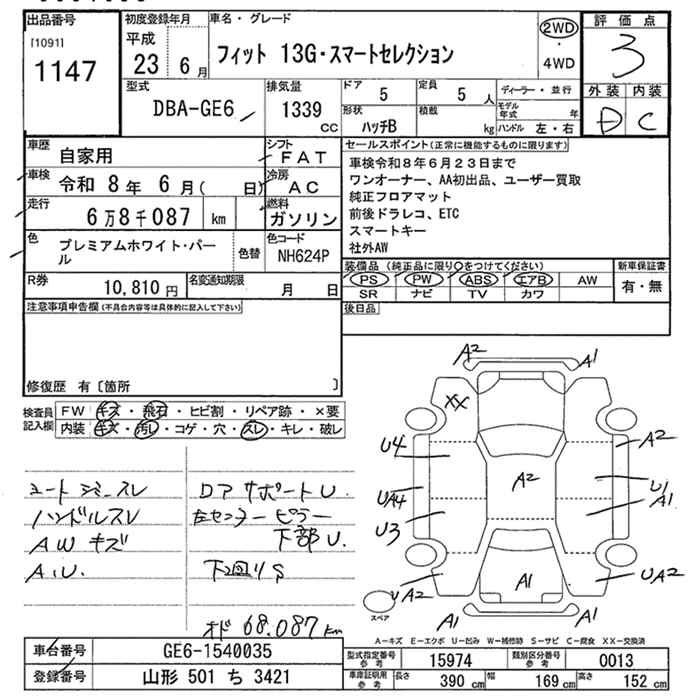 出品番号
[1091]
1147
初度登録年月
平成
23 6月
車名・グレード
フィット 13G・スマートセレクション
2WD
・
4WD
評価点
3
外装 内装
D C
型式
DBA-GE6
排気量
1339
cc
ドア
5
定員
5人
形状
ハッチB
積載
kg
ディーラー・並行
モデル年式 年
ハンドル 左・右
車歴
自家用
シフト
FAT
車検
令和 8年 6月( 日)
冷房
AC
走行
6万8千087 km
燃料
ガソリン
色
プレミアムホワイト・パール
色替
色コード
NH624P
R券
10,810円
名変通知期限
月 日
セールスポイント(正常に機能するものに限ります)
車検令和8年6月23日まで
ワンオーナー、AA初出品、ユーザー買取
純正フロアマット
前後ドラレコ、ETC
スマートキー
社外AW
装備品(純正品に限り○をつけてください)
新車保証書
PS PW ABS エアB AW
SR ナビ TV カワ
有・無
注意事項申告欄(不具合内容等は具体的に記入して下さい)
後日品
修復歴 有〔箇所 〕
検査員
記入欄
FW キズ・飛石・ヒビ割・リペア跡・×要
内装 キズ・汚レ・コゲ・穴・スレ・キレ・破レ
シートジミースレ
ハンドルスレ
AW キズ
A.U.
ロアサポートU
左センターピラー
下部U.
下回りS
オド 68.087km
A2
A1
XX
U4
A2
A2
UA4
U1
A1
U3
UA2
A1
UA2
A1
A1
スペア
A-キズ E-エクボ U-凹み W-補修跡 S-サビ C-腐食 XX-交換済
車台番号
GE6-1540035
登録番号
山形 501 ち 3421
型式指定番号
参考
15974
類別区分番号
参考
0013
車庫証明用
参考
長さ
390 cm
幅
169 cm
高さ
152 cm